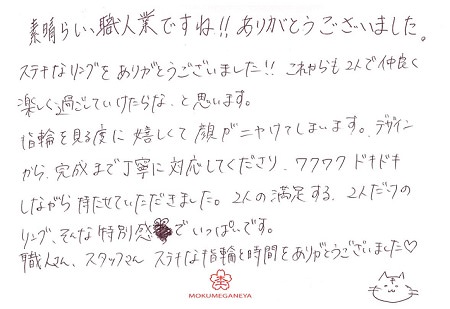 素晴らしい職人業ですね!! ありがとうございました。
ステキなリングをありがとうございました!! これからも2人で仲良く
楽しく過ごしていけたらな、と思います。
指輪を見る度に嬉しくて顔がニヤけてしまいます。デザイン
から、完成まで丁寧に対応してくださり、ワクワクドキドキ
しながら待たせていただきました。2人の満足する、2人だけの
リング、そんな特別感でいっぱいです。
職人さん、スタッフさん ステキな指輪と時間をありがとうございました♡
MOKUMEGANEYA